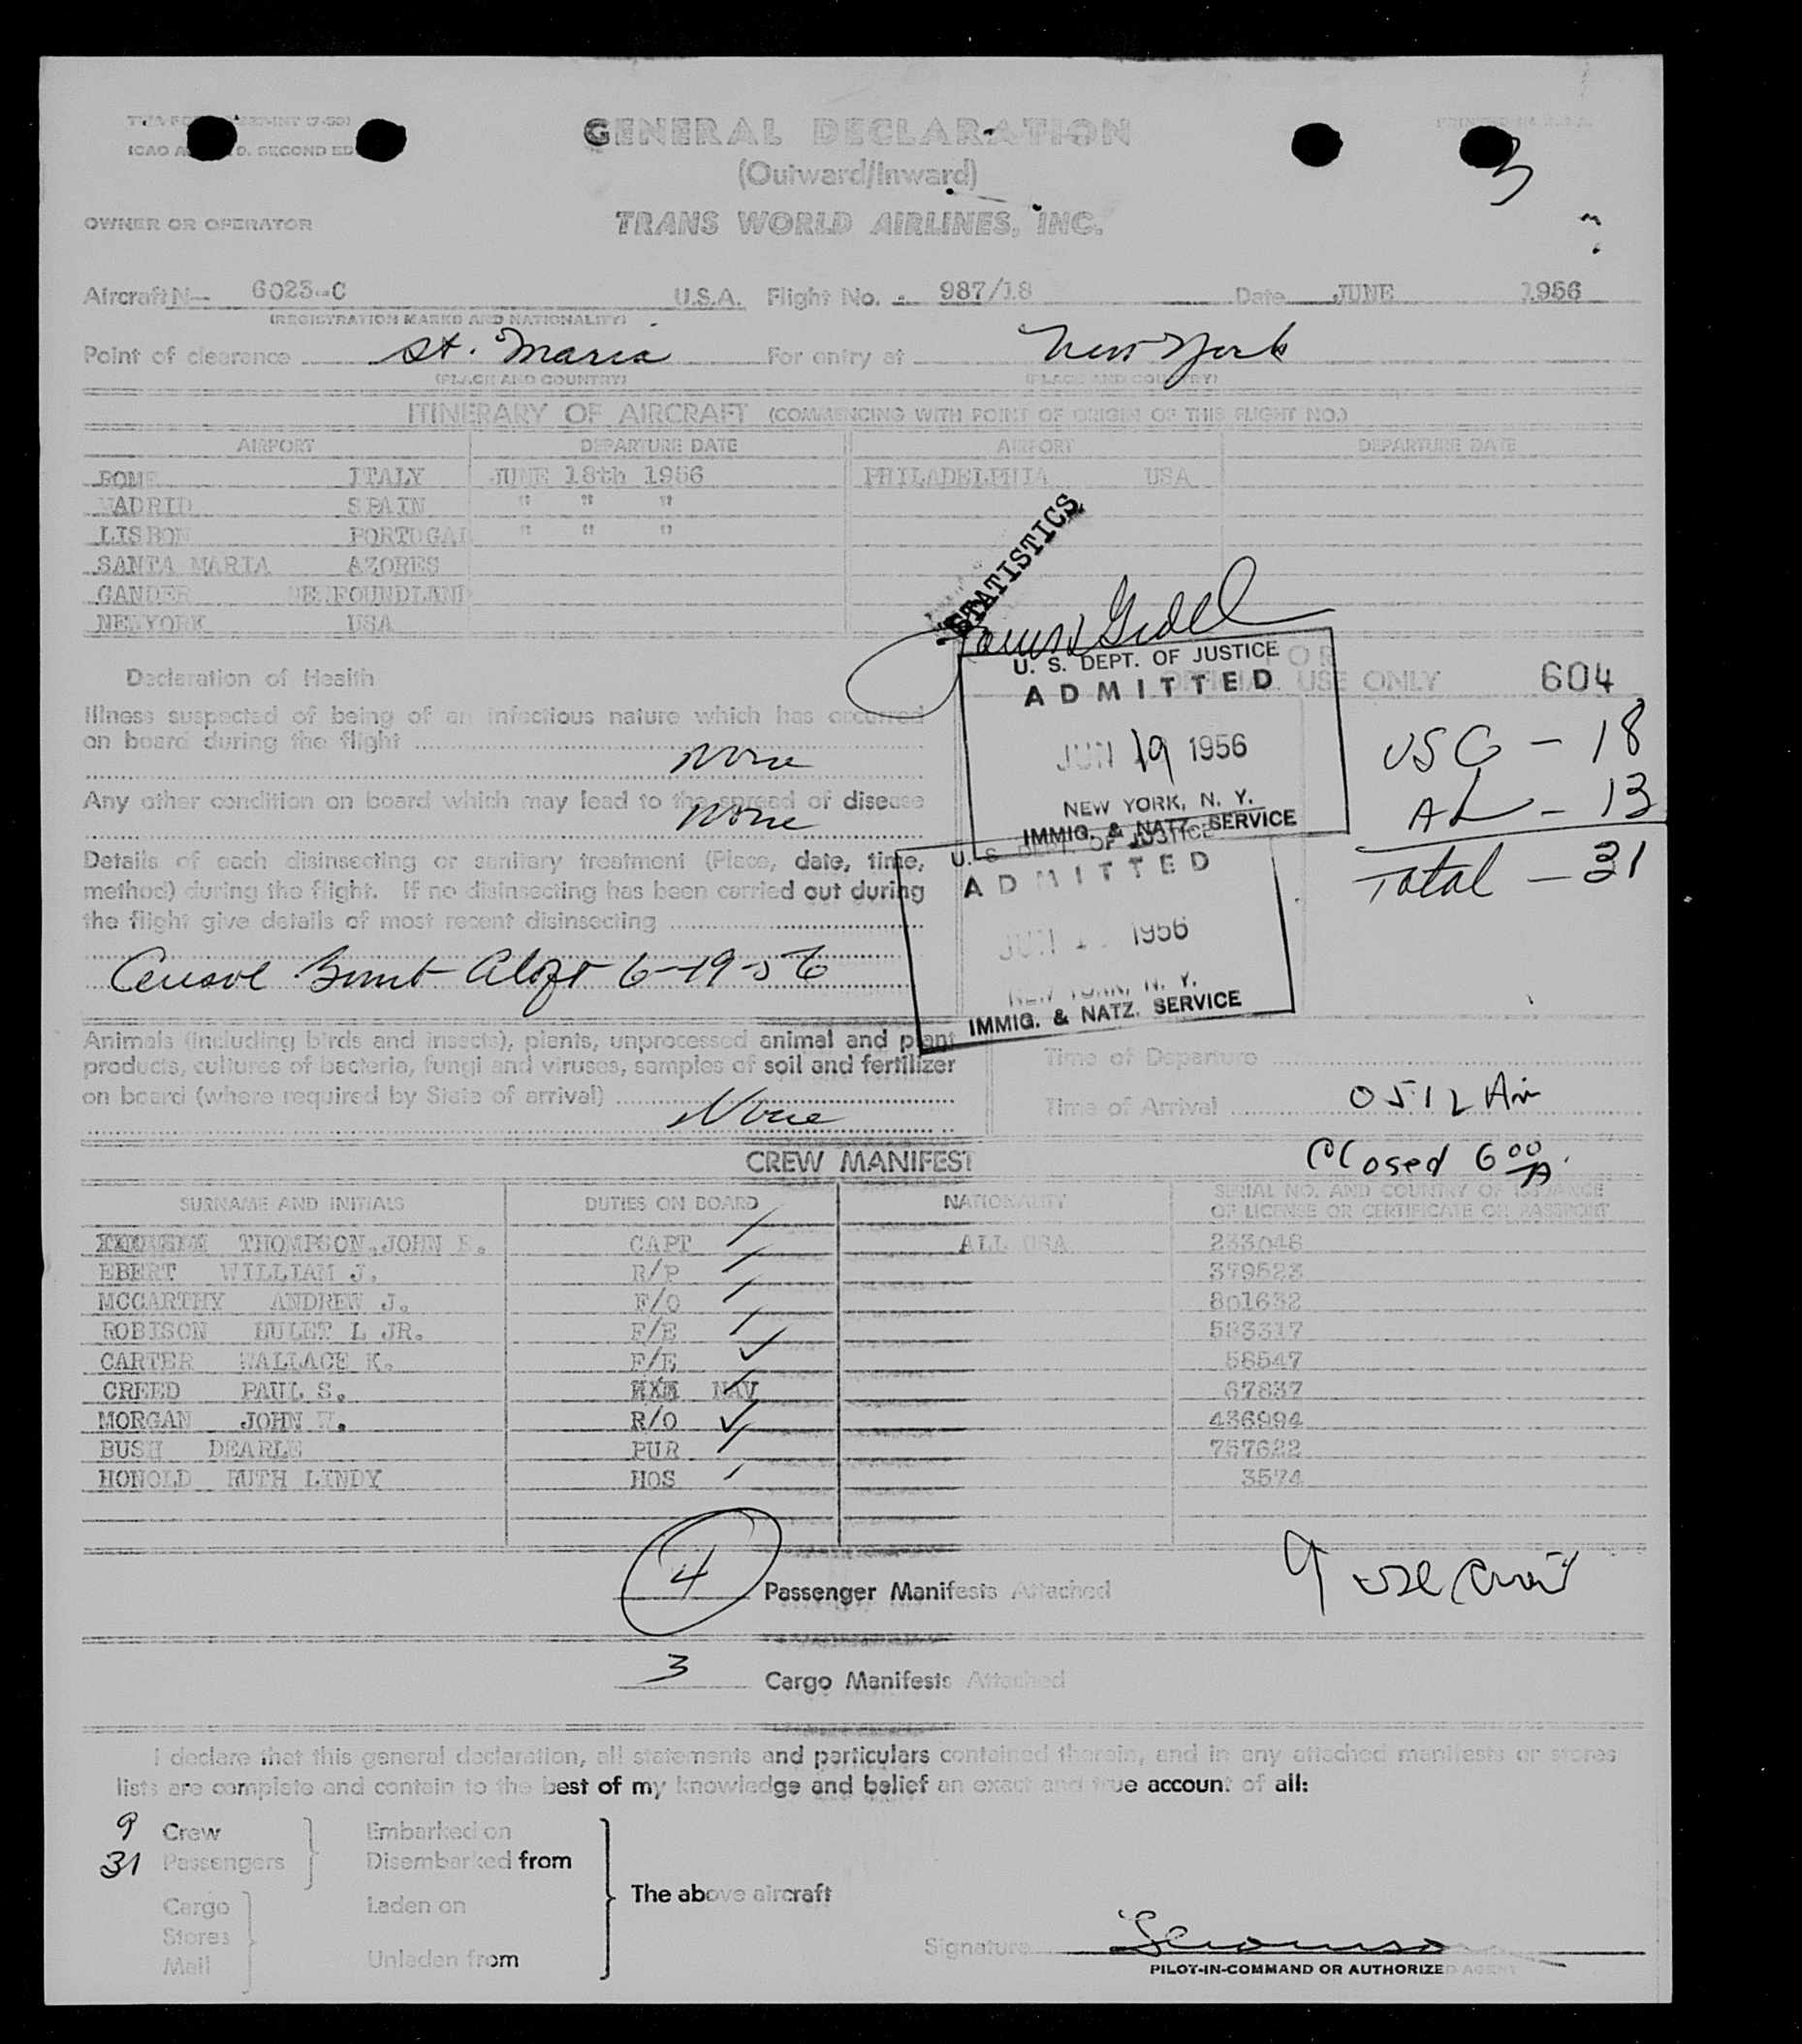 GENERAL DECLARATION
(Outward/Inward)
TRANS WORLD AIRLINES, INC.
3
ICAO SECOND ED
OWNER OR OPERATOR
Aircraft N— 6023-C U.S.A. Flight No. 987/18 Date JUNE 1956
(REGISTRATION MARKS AND NATIONALITY)
Point of clearance St. Maria For entry at New York
(PLACE AND COUNTRY) (PLACE AND COUNTRY)
ITINERARY OF AIRCRAFT (COMMENCING WITH POINT OF ORIGIN OF THIS FLIGHT NO.)
AIRPORT DEPARTURE DATE AIRPORT DEPARTURE DATE
ROME ITALY JUNE 18th 1956 PHILADELPHIA USA
MADRID SPAIN " " "
LISBON PORTUGAL " " "
SANTA MARIA AZORES
GANDER NEWFOUNDLAND
NEWYORK USA
STATISTICS
Declaration of Health
FOR
OFFICIAL USE ONLY 604
U. S. DEPT. OF JUSTICE
ADMITTED
JUN 19 1956
NEW YORK, N. Y.
IMMIG. & NATZ. SERVICE
USC - 18
AL - 13
Total - 31
U. S. DEPT. OF JUSTICE
ADMITTED
JUN 1956
NEW YORK, N. Y.
IMMIG. & NATZ. SERVICE
Illness suspected of being of an infectious nature which has occurred
on board during the flight
None
Any other condition on board which may lead to the spread of disease
None
Details of each disinsecting or sanitary treatment (Place, date, time,
method) during the flight. If no disinsecting has been carried out during
the flight give details of most recent disinsecting
Bomb Aloft 6-19-56
Animals (including birds and insects), plants, unprocessed animal and plant
products, cultures of bacteria, fungi and viruses, samples of soil and fertilizer
on board (where required by State of arrival)
None
Time of Departure
Time of Arrival 0512 Am
Closed 6 00 A.
CREW MANIFEST
SURNAME AND INITIALS DUTIES ON BOARD NATIONALITY SERIAL NO. AND COUNTRY OF ISSUANCE
OF LICENSE OR CERTIFICATE OR PASSPORT
THOMPSON, JOHN E. CAPT ALL USA 233048
EBERT WILLIAM J. R/P 379523
MCCARTHY ANDREW J. F/O 801632
ROBISON HULET L JR. F/E 583317
CARTER WALLACE K. F/E 58547
CREED PAUL S. NAV 67837
MORGAN JOHN W. R/O 436994
BUSH DEARLE PUR 757622
HONOLD RUTH LINDY HOS 3574
4 Passenger Manifests Attached
9
3 Cargo Manifests Attached
I declare that this general declaration, all statements and particulars contained therein, and in any attached manifests or stores
lists are complete and contain to the best of my knowledge and belief an exact and true account of all:
9 Crew
31 Passengers
Embarked on
Disembarked from
Cargo
Stores
Mail
Laden on
Unladen from
The above aircraft
Signature
PILOT-IN-COMMAND OR AUTHORIZED AGENT